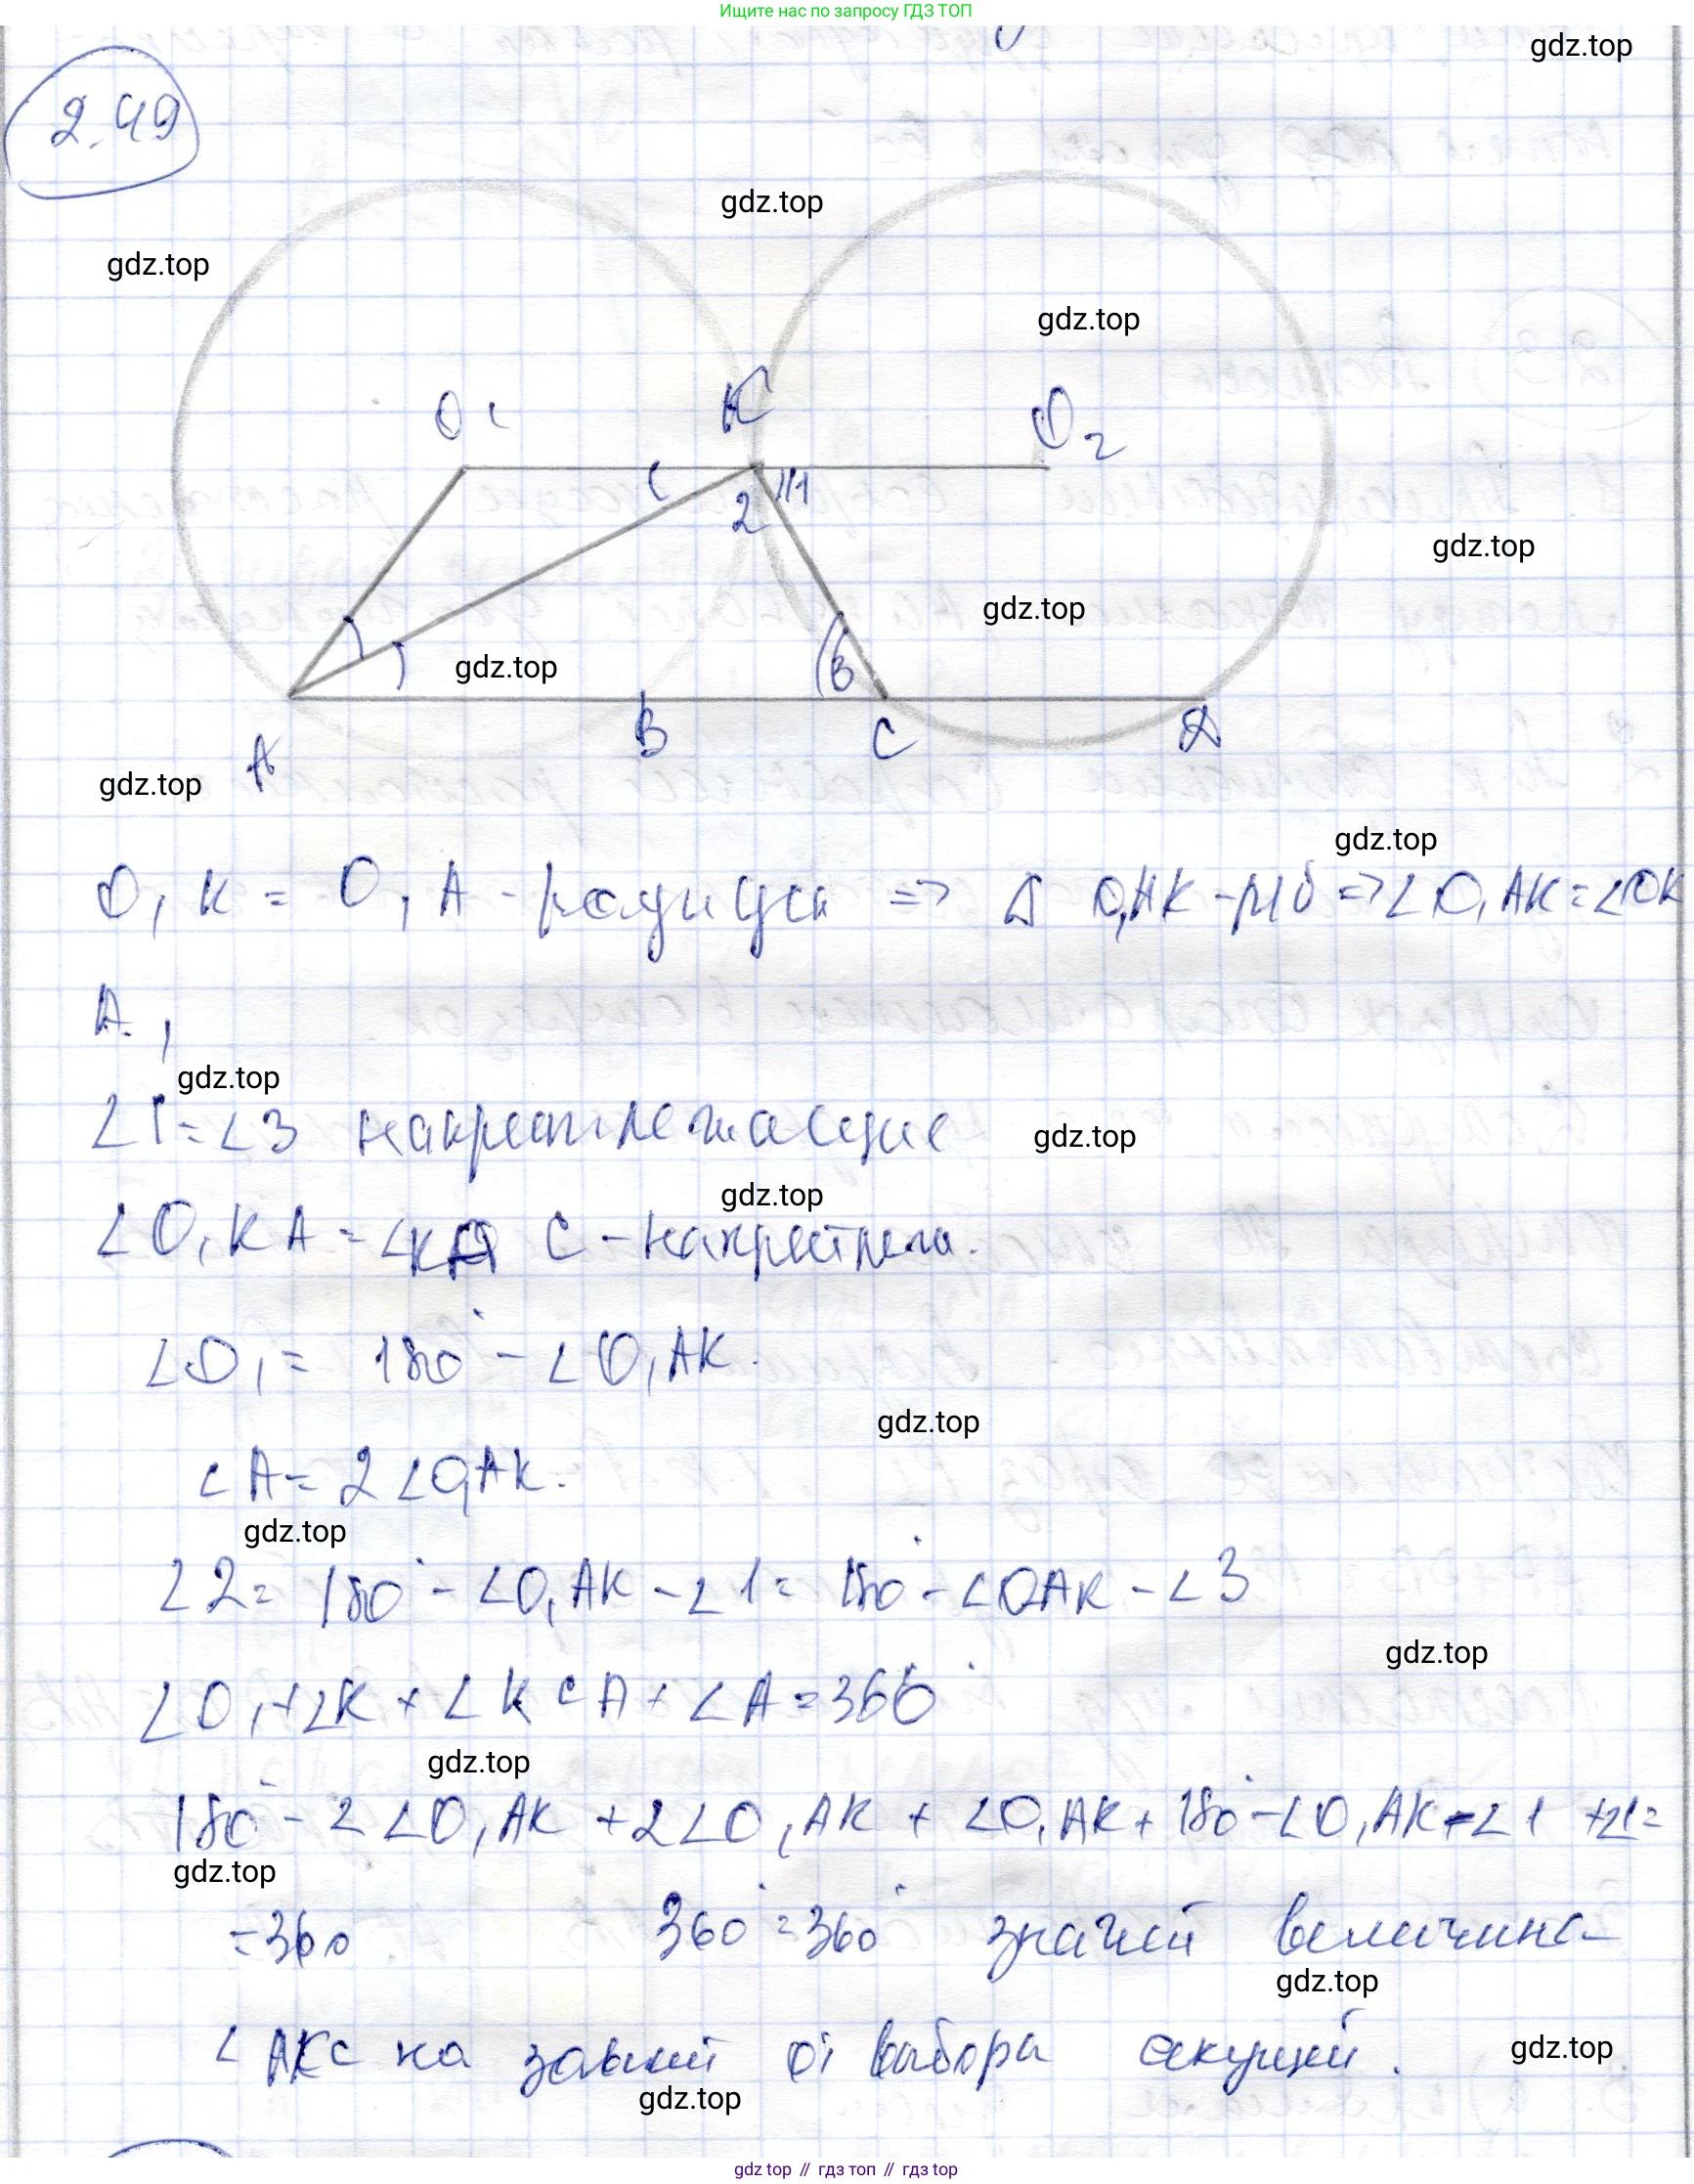 Ищите нас по запросу ГДЗ ТОП
gdz.top
2.49
gdz.top
gdz.top
gdz.top
O1
K
O2
2
1
gdz.top
gdz.top
3
gdz.top
A
B
C
D
gdz.top
gdz.top
O1K = O1A - радиусы => Δ O1AK - р/б => ∠O1AK = ∠OK
A1
gdz.top
∠1 = ∠3 накрест лежащие
gdz.top
gdz.top
∠O1KA = ∠KAC - накрест леж.
∠O1 = 180° - ∠O1AK.
gdz.top
∠A = 2∠O1AK.
gdz.top
∠2 = 180° - ∠O1AK - ∠1 = 180° - ∠OAK - ∠3
gdz.top
∠O1 + ∠K + ∠KCA + ∠A = 360°
gdz.top
180° - 2∠O1AK + 2∠O1AK + ∠O1AK + 180° - ∠O1AK - ∠1 + ∠1 =
gdz.top
= 360 360° = 360° значит величина
gdz.top
∠AKC не зависит от выбора секущей.
gdz.top
gdz.top
gdz top // гдз топ // гдз top